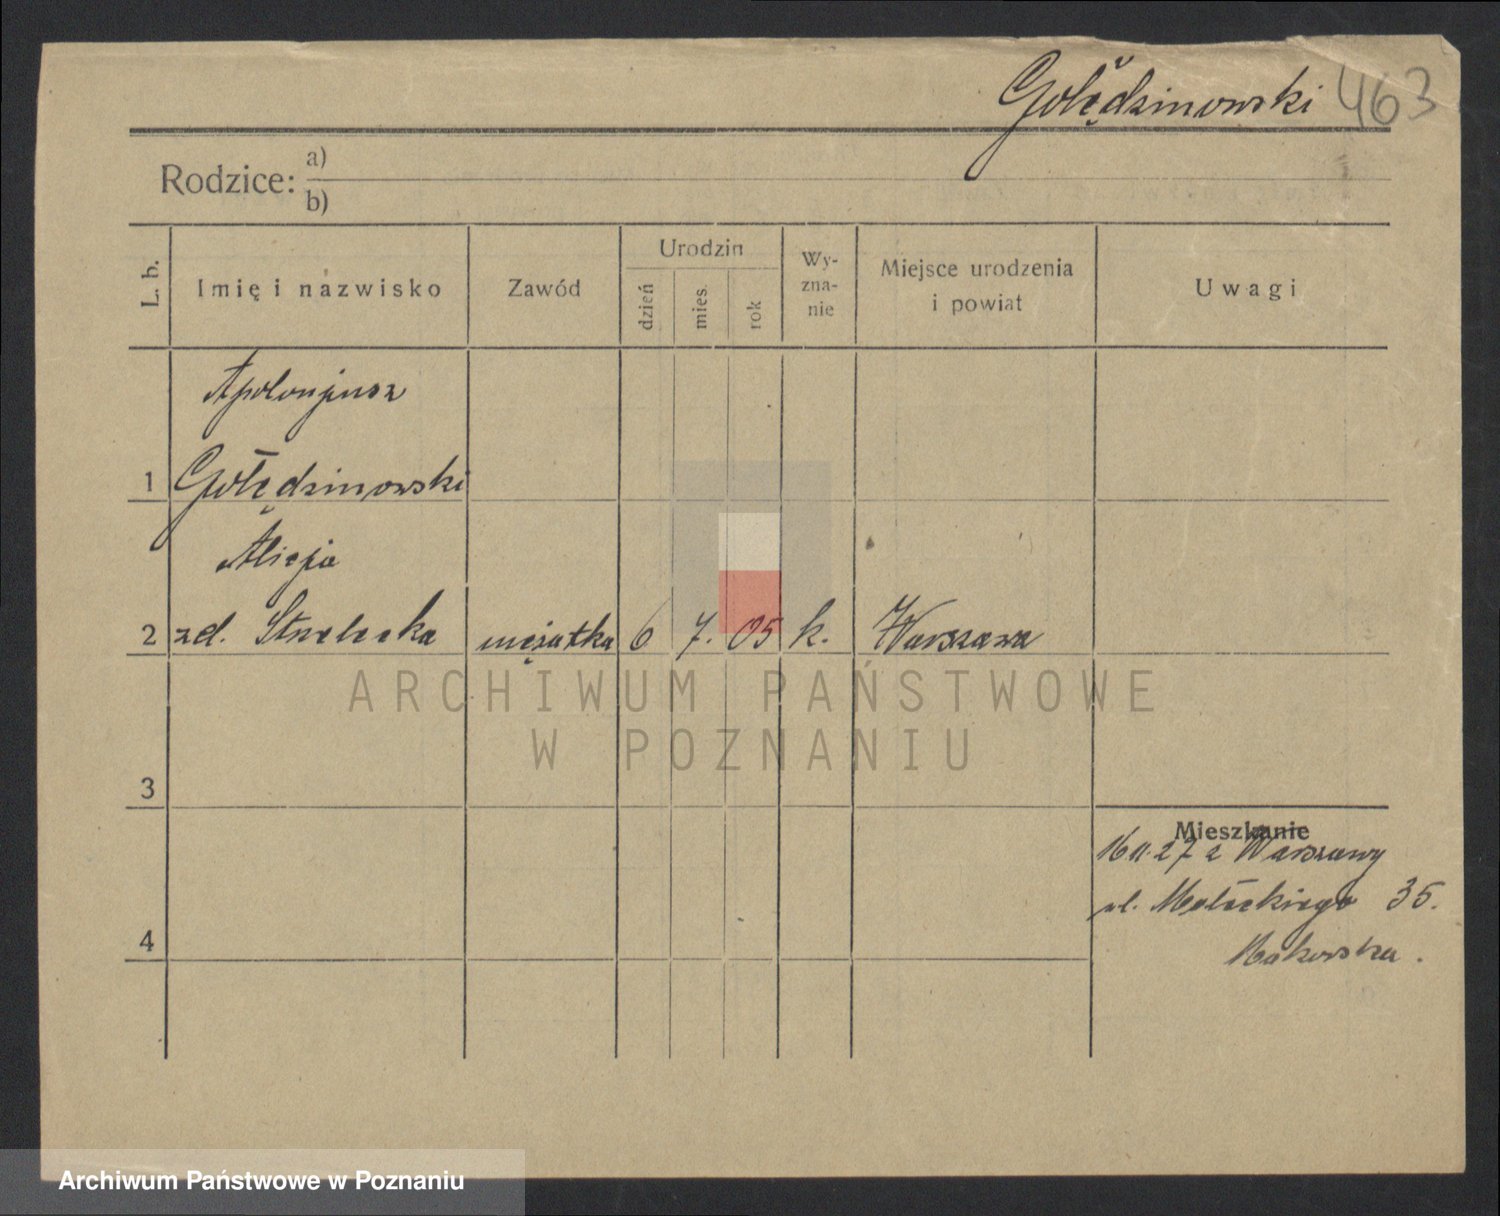 Gołędzinowski 463
Rodzice: a)
b)
L. b.
Imię i nazwisko
Zawód
Urodzin
dzień
mies.
rok
Wy-
zna-
nie
Miejsce urodzenia
i powiat
Uwagi
Apolonjusz
1 Gołędzinowski
Alicja
2 zd. Strzelecka mężatka 6 7. 05 k. Warszawa
ARCHIWUM PAŃSTWOWE
W POZNANIU
3
Mieszkanie
16 11. 27 z Warszawy
ul. Małeckiego 35.
4
Makowska.
Archiwum Państwowe w Poznaniu